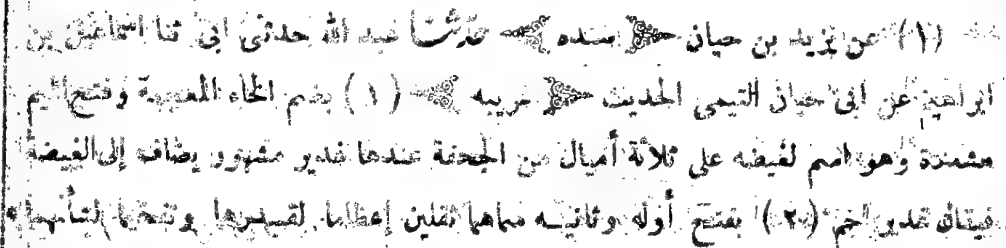 (١) عن يزيد بن حيان سنده حدثنا عبد الله حدثنى ابى ثنا اسماعيل بن
ابراهيم عن ابى حيان التيمى الحديث غريبه (١) بضم الخاء المعجمة وفتح الميم
مشددة وهو اسم لغيضة على ثلاثة أميال من الجحفة عندها غدير مشهور يضاف إلى الغيضة
فيقال غدير خم (٢) بفتح أوله وثانيه سماهما ثقلين إعظاما لقدرهما وتفخيما لشأنهما